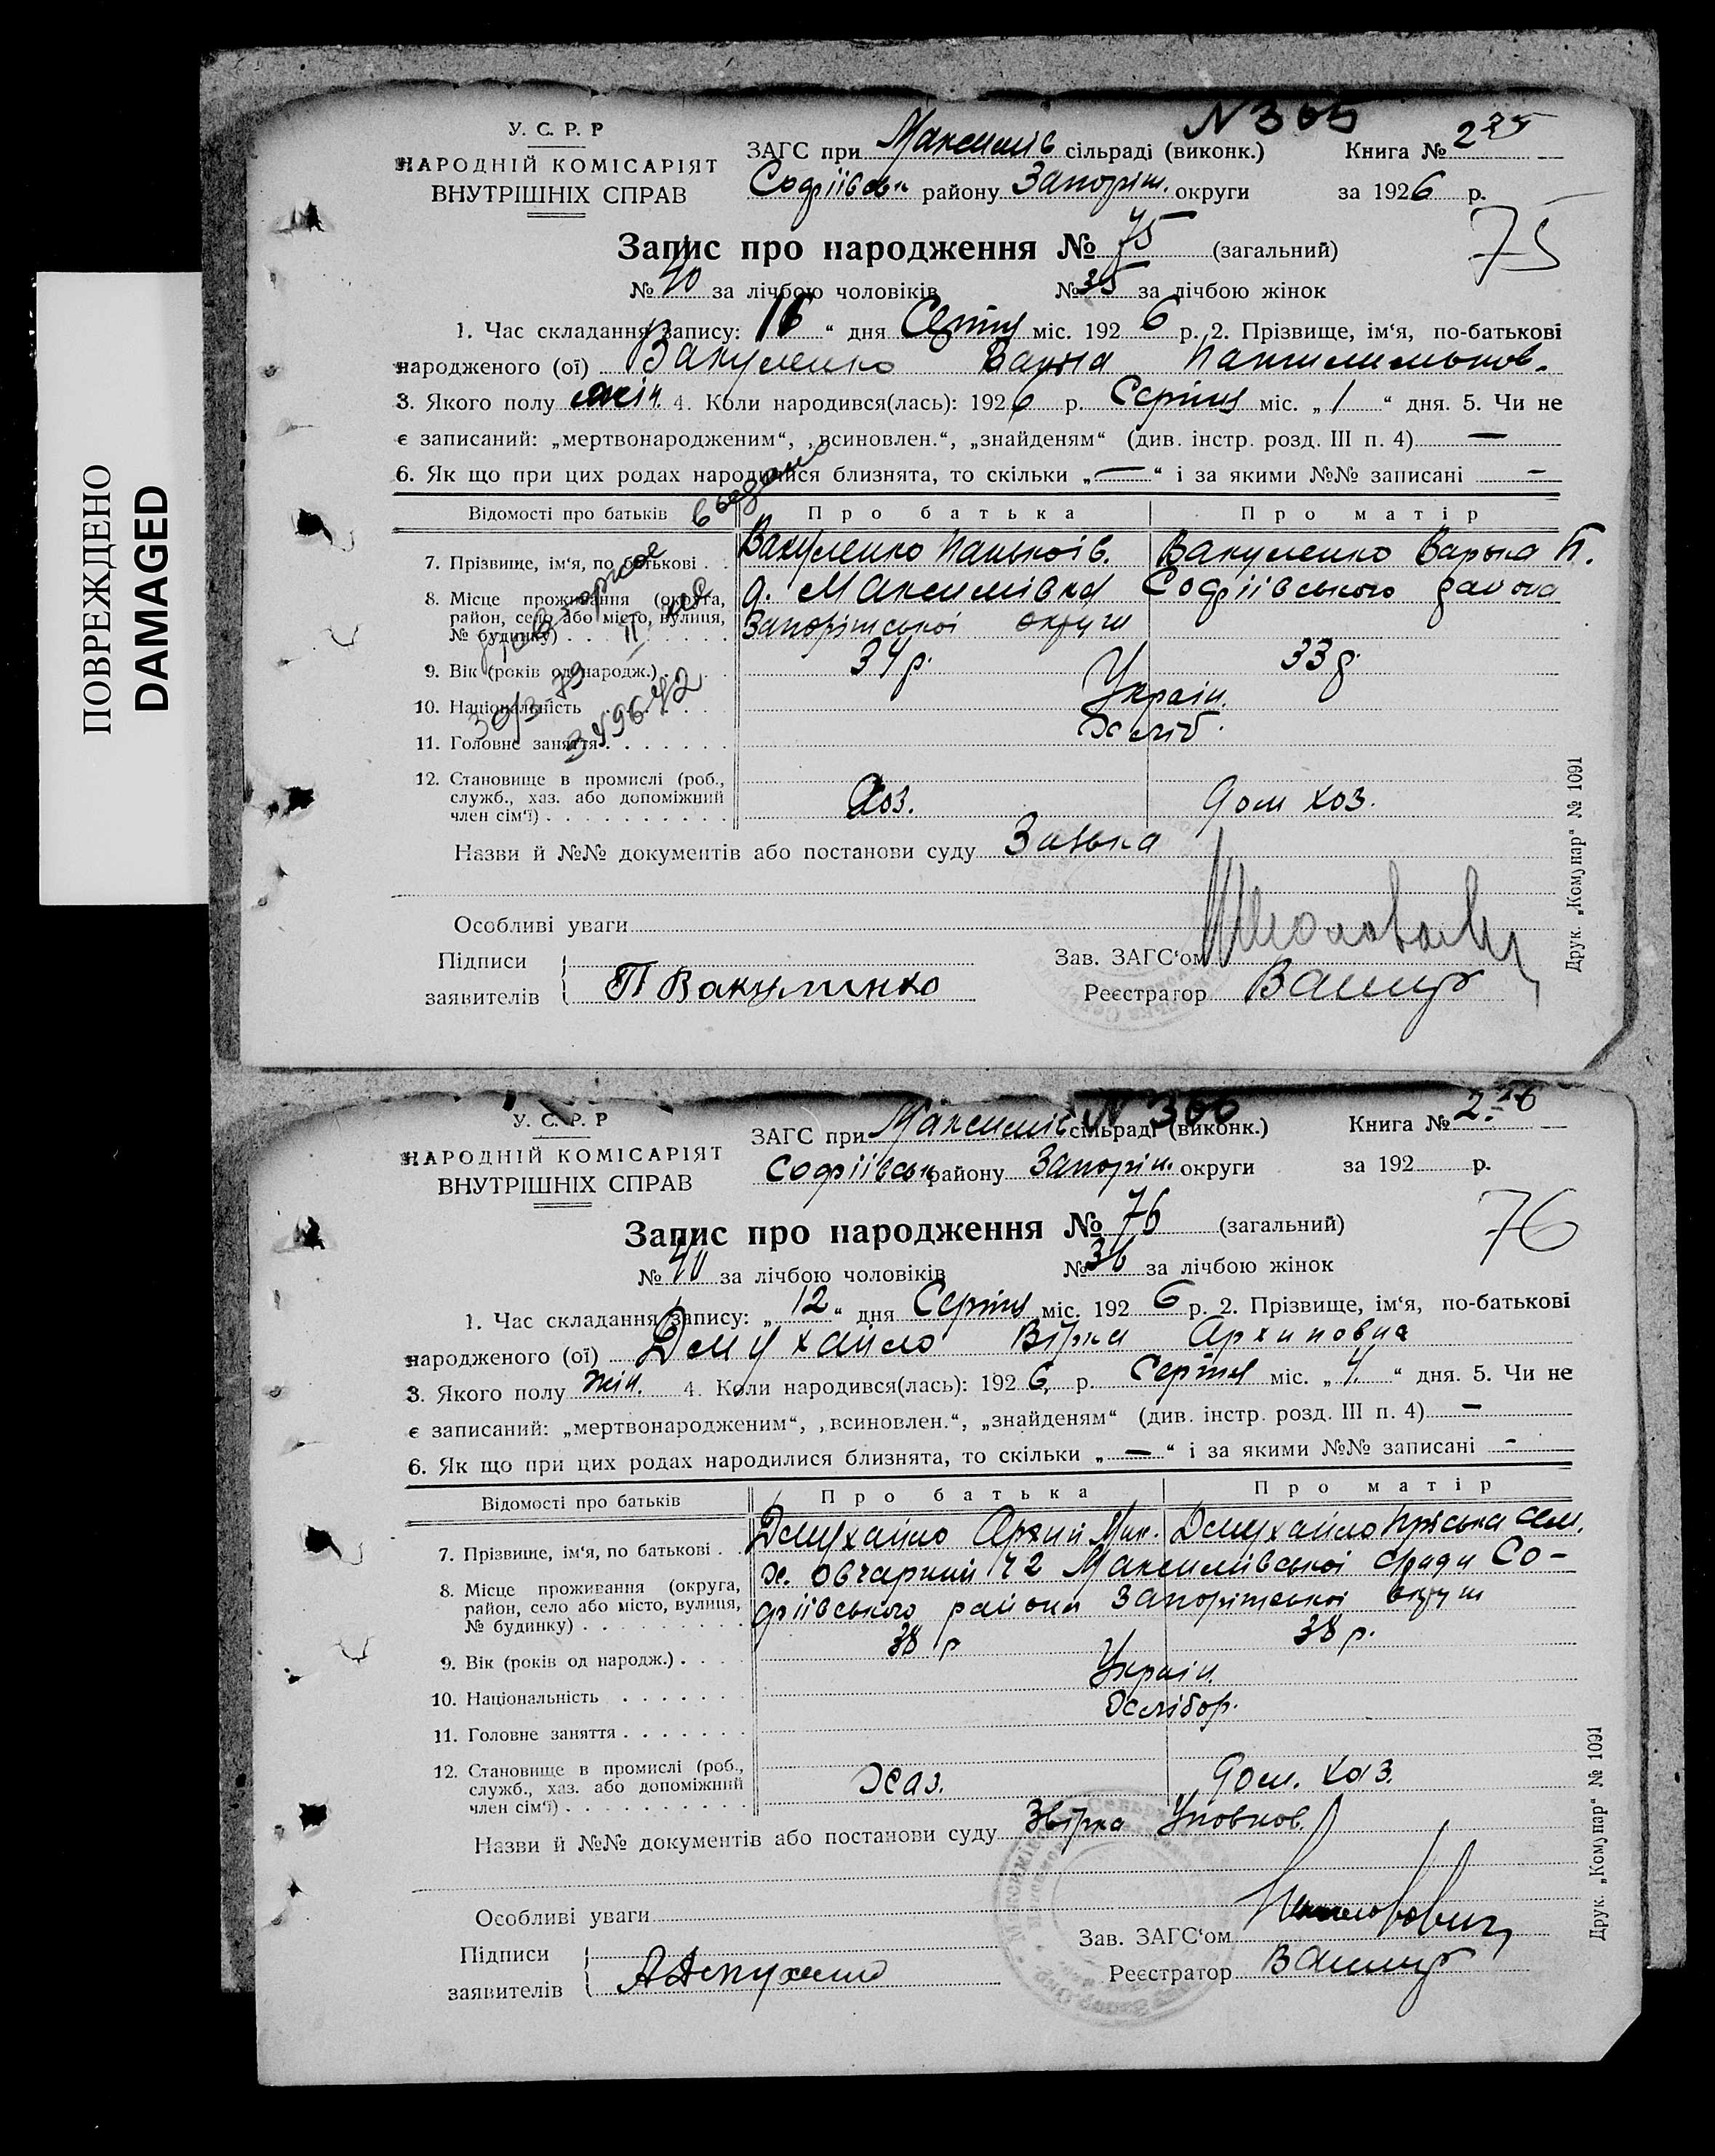 ПОВРЕЖДЕНО
DAMAGED
N 305
У. С. Р. Р
НАРОДНІЙ КОМІСАРІЯТ
ВНУТРІШНІХ СПРАВ
ЗАГС при Максимів сільраді (виконк.) Книга № 225
Софіївськ району Запоріж. округи за 1926 р.
75
Запис про народження № 75 (загальний)
№ 40 за лічбою чоловіків № 35 за лічбою жінок
1. Час складання запису: 16 “ дня Серпня міс. 1926 р. 2. Прізвище, ім‘я, по-батькові
народженого (ої) Вакуленко
3. Якого полу жін. 4. Коли народився(лась): 1926 р. Серпня міс. „ 1 “ дня. 5. Чи не
є записаний: „мертвонародженим“, „всиновлен.“, „знайденям“ (див. інстр. розд. III п. 4) —
6. Як що при цих родах народилися близнята, то скільки „ — “ і за якими №№ записані —
Відомості про батьків Про батька Про матір
7. Прізвище, ім‘я, по батькові . . Вакуленко Вакуленко Варька П.
8. Місце проживання (округа, район, село або місто, вулиця, № будинку) . . . . . . . . . д. Максимівка Софіївського района
Запоріжської округи
9. Вік (років од народж.) . . . . 34 р. 33 р.
10. Національність . . . . . . . Україн.
11. Головне заняття . . . . . . . Хліб.
12. Становище в промислі (роб., служб., хаз. або допоміжний член сім‘ї) . . . . . . . . . . Хоз. Дом хоз.
Назви й №№ документів або постанови суду
Особливі уваги
Підписи
заявителів П Вакуленко
Зав. ЗАГС‘ом
Реєстратор
Друк. „Комунар“ № 1091
N 306
У. С. Р. Р
НАРОДНІЙ КОМІСАРІЯТ
ВНУТРІШНІХ СПРАВ
ЗАГС при Максимів сільраді (виконк.) Книга № 226
Софіївськ району Запоріж. округи за 192 р.
76
Запис про народження № 76 (загальний)
№ 40 за лічбою чоловіків № 36 за лічбою жінок
1. Час складання запису: „ 12 “ дня Серпня міс. 1926 р. 2. Прізвище, ім‘я, по-батькові
народженого (ої) Демухайло Вірка Архиповна
3. Якого полу жін. 4. Коли народився(лась): 1926 р. Серпня міс. „ 4 “ дня. 5. Чи не
є записаний: „мертвонародженим“, „всиновлен.“, „знайденям“ (див. інстр. розд. III п. 4) —
6. Як що при цих родах народилися близнята, то скільки „ — “ і за якими №№ записані -
Відомості про батьків Про батька Про матір
7. Прізвище, ім‘я, по батькові . . Демухайло Архип Мик. Демухайло Пріська Сем.
8. Місце проживання (округа, район, село або місто, вулиця, № будинку) . . . . . . . . . х. Овчарний ч 2 Максимівської с/ради Со-
фіївського района Запоріжської округи
9. Вік (років од народж.) . . . . 38 р 38 р.
10. Національність . . . . . . . Україн.
11. Головне заняття . . . . . . . Хлібор.
12. Становище в промислі (роб., служб., хаз. або допоміжний член сім‘ї) . . . . . . . . . . Хаз. Дом. хаз.
Назви й №№ документів або постанови суду
Особливі уваги
Підписи
заявителів
Зав. ЗАГС‘ом
Реєстратор
Друк. „Комунар“ № 1091